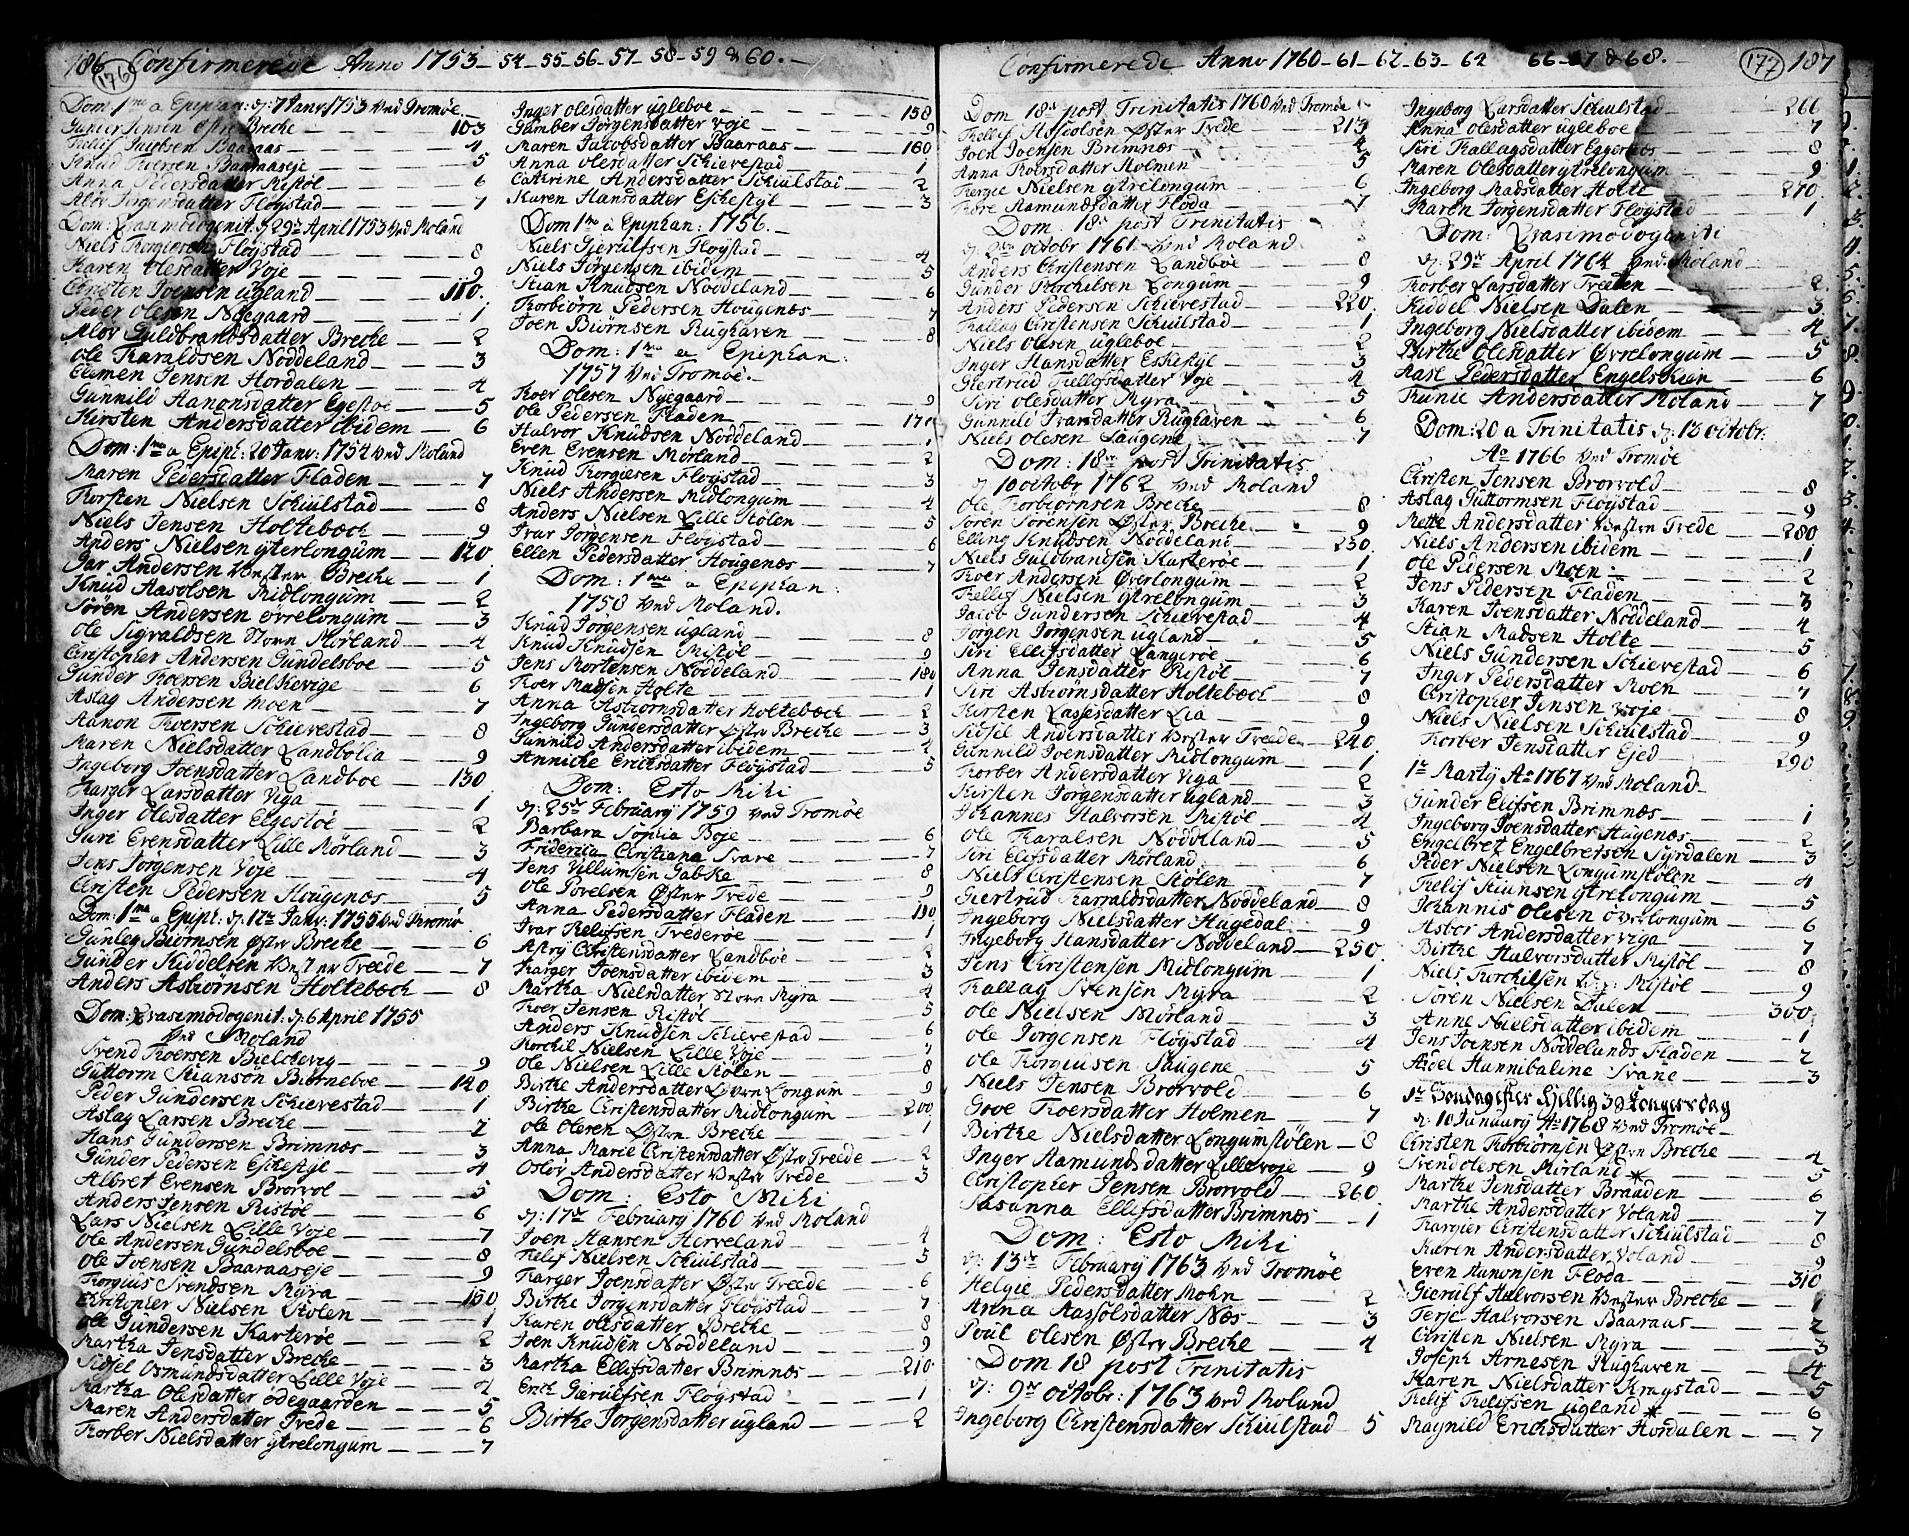 186 Confirmerede Anno 1753-54-55-56-57-58-59 & 60.
176
Dom: 1me a Epiphan: d: 7 Janv: 1753 ved Tromøe.
Gunder Jensen Østre Breche 103
Tellif Jacobsen Baaraas 4
Knud Toersen Baaraaseje 5
Anna Pedersdatter Ristøl 6
Alov Jørgensdatter Fløystad 7
Dom: Qvasimodogenit: d 29de April 1753 ved Moland
Niels Thorgiersen Fløystad 8
Karen Olesdatter Voje 9
Christen Joensen Ugland 110.
Peder Olesen Nyegaard 1
Alov Guldbrandsdatter Breche 2
Ole Haraldsen Nøddeland 3
Clemen Jensen Hordalen 4
Gunnild Aanonsdatter Egestøe 5
Kirsten Andersdatter ibidem 6
Dom: 1me a Epiph: 20 Janv: 1754 ved Moland
Maren Pedersdatter Fladen 7
Torsten Nielsen Schiulstad 8
Niels Jensen Holtebæch 9
Anders Nielsen ytrelongum 120.
Iver Andersen Vester Breche 1
Knud Aasolsen Midlongum 2
Søren Andersen øvrelongum 3
Ole Sigvaldsen Store Mørland 4
Christopher Andersen Gundelsboe 5
Gunder Toersen Bielkevige 6
Aslag Andersen Moen 7
Aanon Thoersen Schievestad 8
Maren Nielsdatter Landbolia 9
Ingeborg Joensdatter Landboe 130
Karger Larsdatter Viga 1
Inger Olesdatter Elgestøe 2
Guri Evensdatter Lille Mørland 3
Jens Jørgensen Voje 4
Christen Pedersen Hougenæs 5
Dom: 1me a Epiph: d: 12te Janv: 1755 ved Tromøe
Gunleg Biørnsen Østre Breche 6
Gunder Kiddelsen Vester Treede 7
Anders Asbiørnsen Holtebæch 8
Dom: Qvasimodogenit: d 6 April 1755
ved Moland
Svend Thoersen Bielchevig 9
Guttorm Stiansøn Biørneboe 140
Peder Gundersen Schievestad 1
Aslag Larsen Breche 2
Hans Gundersen Brimnæs 3
Gunder Pedersen Eschestyl 4
Albret Evensen Brørvol 5
Anders Jensen Ristøl 6
Lars Nielsen Lille Voje 7
Ole Andersen Gundelsboe 8
Ole Joensen Baaraaseje 9
Torgius Svendsen Myra 150
Christopher Nielsen Stølen 1
Ole Gundersen Karterøe 2
Martha Jensdatter Breche 3
Sidsel Osmundsdatter Lille Voje 4
Martha Olesdatter Ødegaarden 5
Maren Andersdatter Trede 6
Torber Nielsdatter ytrelongum 7
Inger Olesdatter Ugleboe 158
Gumber Jørgensdatter Voje 9
Maren Jacobsdatter Baaraas 160
Anna Olesdatter Schievestad 1
Cathrine Andersdatter Schiulstad 2
Karen Hansdatter Eschestyl 3
Dom 1me a Epiphan: 1756.
Niels Gierulfsen Fløystad 4
Niels Jørgensen ibidem 5
Stian Knudsen Nøddeland 6
Torbiørn Pedersen Hougenæs 7
Joen Biørnsen Rughaven 8
Dom: 1me a Epiphan:
1757 ved Tromøe.
Thoer Olesen Nyegaard 9
Ole Pedersen Fladen 170
Halvor Knudsen Nøddeland 1
Even Evensen Mørland 2
Knud Torgiusen Fløystad 3
Niels Andersen Midlongum 4
Anders Nielsen Lille Stølen 5
Ivar Jørgensen Fløystad 6
Ellen Pedersdatter Hougenæs 7
Dom: 1me a Epiphan:
1758 ved Moland.
Knud Jørgensen Ugland 8
Knud Knudsen Ristøl 9
Jens Mortensen Nøddeland 180
Thoer Madsen Holte 1
Anna Asbiørnsdatter Holtebæch 2
Ingeborg Gundersdatter Østre Breche 3
Gunnild Andersdatter ibidem 4
Anniche Erichsdatter Fløystad 5
Dom: Esto Mihi
d: 25de February 1759 ved Tromøe
Barbara Sophia Boje 6
Friderica Christiana Svare 7
Jens Villumsen Gabke 8
Ole Povelsen Øster Trede 9
Anna Pedersdatter Fladen 190
Ivar Tellufsen Trederøe 1
Astri Christensdatter Landboe 2
Karger Joensdatter ibidem 3
Martha Nielsdatter Store Myra 4
Thoer Jensen Ristøl 5
Anders Knudsen Schievestad 6
Torchil Nielsen Lille Voje 7
Ole Nielsen Lille Stølen 8
Birthe Andersdatter Øvre Longum 9
Birthe Christensdatter Midlongum 200
Ole Olesen Østre Breche 1
Anna Marie Christensdatter Øster Treede 2
Oslov Andersdatter Vester Trede 3
Dom: Esto Mihi
d: 17de February 1760 ved Moland
Joen Hansen Herveland 4
Tellef Nielsen Schiulstad 5
Karger Joensdatter Øster Treede 6
Birthe Jørgensdatter Fløystad 7
Karen Olesdatter Breche 8
Joen Knudsen Nøddeland 9
Martha Ellefsdatter Brimnæs 210
Erich Gierulfsen Fløystad 1
Birthe Jørgensdatter Ugland 2
Confirmerede Anno 1760-61-62-63-64 66-67 & 68. 177 187
Dom 18de post Trinitatis 1760 ved Tromøe
Tellif Assolsen Øster Trede 213
Joen Joensen Brimnæs 4
Anna Thoersdatter Holmen 5
Tergie Nielsen ytrelongum 6
Tore Aamundsdatter Fløda 7
Dom: 18de post Trinitatis
d: 2den octobr 1761 ved Moland
Anders Christensen Landboe 8
Gunder Torchilsen Longum 9
Anders Pedersen Schievestad 220
Tallag Christensen Schiulstad 1
Niels Olesen Ugleboe 2
Inger Hansdatter Eskestyl 3
Giertrud Tellefsdatter Voje 4
Siri Olesdatter Myra 5
Gunnild Ivarsdatter Rughaven 6
Niels Olesen Saugene 7
Dom: 18de post Trinitatis
d 10 octobr 1762 ved Moland
Ole Torbiørnsen Breche 8
Søren Sørensen Øster Breche 9
Elling Knudsen Nøddeland 230
Niels Guldbrandsen Karterøe 1
Thoer Andersen Øverlongum 2
Tellef Nielsen ytrelongum 3
Jacob Gundersen Schievestad 4
Jørgen Jørgensen Ugland 5
Siri Ellefsdatter Langerøe 6
Anna Jensdatter Ristøl 7
Siri Asbiørnsdatter Holtebæch 8
Kirsten Lassesdatter Lia 9
Sidsel Andersdatter Vester Treede 240
Gunnild Joensdatter Midlongum 1
Torber Andersdatter Viga 2
Kirsten Jørgensdatter Ugland 3
Johannes Halvorsen Ristøl 4
Ole Haralsen Nøddeland 5
Siri Elifsdatter Mørland 6
Niels Christensen Stølen 7
Giertrud Harraldsdatter Nøddeland 8
Ingeborg Nielsdatter Hagedal 9
Ingeborg Hansdatter Nøddeland 250
Jens Christensen Midlongum 1
Tallag Svensen Myra 2
Ole Nielsen Mørland 3
Ole Jørgensen Fløystad 4
Ole Torgiusen Saugene 5
Niels Jensen Brørvold 6
Groe Thoersdatter Holmen 7
Birthe Nielsdatter Longumstølen 8
Inger Aamundsdatter Lillevoje 9
Christopher Jensen Brørvold 260
Susanna Ellefsdatter Brimnæs 1
Dom: Esto Mihi
d: 13de February 1763 ved Tromøe
Helgie Pedersdatter Mohn 2
Anna Aassolsdatter Næs 3
Poul Olesen Østre Breche 4
Dom 18 post Trinitatis
d: 9de octobr: 1763 ved Moland
Ingeborg Christensdatter Schiulstad 5
Ingeborg Larsdatter Schiulstad 266
Anna Olesdatter Ugleboe 7
Siri Tallagsdatter Eggernes 8
Maren Olesdatter ytrelongum 9
Ingeborg Madsdatter Holte 270
Karen Jørgensdatter Fløystad 1
Dom: Qvasimodogeniti
d: 29de April 1764 ved Moland
Torber Larsdatter Treeden 2
Kiddel Nielsen Dalen 3
Ingeborg Nielsdatter ibidem 4
Birthe Olesdatter Øvrelongum 5
Aase Pedersdatter Engelskiøn 6
Tunie Andersdatter Moland 7
Dom: 20 a Trinitatis d: 13 octobr:
Ao 1766 ved Tromøe
Christen Jensen Brørvold 8
Aslag Guttormsen Fløystad 9
Mette Andersdatter Vester Trede 280
Niels Andersen ibidem 1
Ole Pedersen Moen 2
Jens Pedersen Fladen 3
Karen Joensdatter Nøddeland 4
Stian Madsen Holte 5
Niels Gundersen Schievestad 6
Inger Pedersdatter Moen 7
Christopher Jensen Voje 8
Niels Nielsen Schiulstad 9
Torber Jensdatter Ejed 290
1te Martij Ao 1767 ved Moland
Gunder Elifsen Brimnæs 1
Ingeborg Joensdatter Hagenæs 2
Engelbret Engelbretsen Syrdalen 3
Peder Nielsen Longumstølen 4
Tellif Stiansen ytrelongum 5
Johannis Olesen Overlongum 6
Asbor Andersdatter Viga 7
Birthe Halvorsdatter Ristøl 8
Niels Turchilsen Ristøl 9
Søren Nielsen Dalen 300
Anne Nielsdatter ibidem 1
Jens Joensen Nøddelands Fladen 2
Aadel Hannibaline Svane 3
1te Søndag efter Hellig 3 Kongers dag
d: 10 January Ao 1768 ved Tromøe
Christen Torbiørnsen Østre Breche 4
Svend Olesen Mørland * 5
Marthe Jensdatter Braaden 6
Marthe Andersdatter Voland 7
Kargier Christensdatter Schiulstad 8
Karen Andersdatter Voland 9
Even Aanonsen Fløda 310
Gierulf Halvorsen Vester Breche 1
Terje Halvorsen Baaraas 2
Christen Nielsen Myra 3
Joseph Arnesen Rughaven 4
Karen Nielsdatter Kragstad 5
Tellif Tellifsen Ugland * 6
Raynild Erichsdatter Hordalen 7